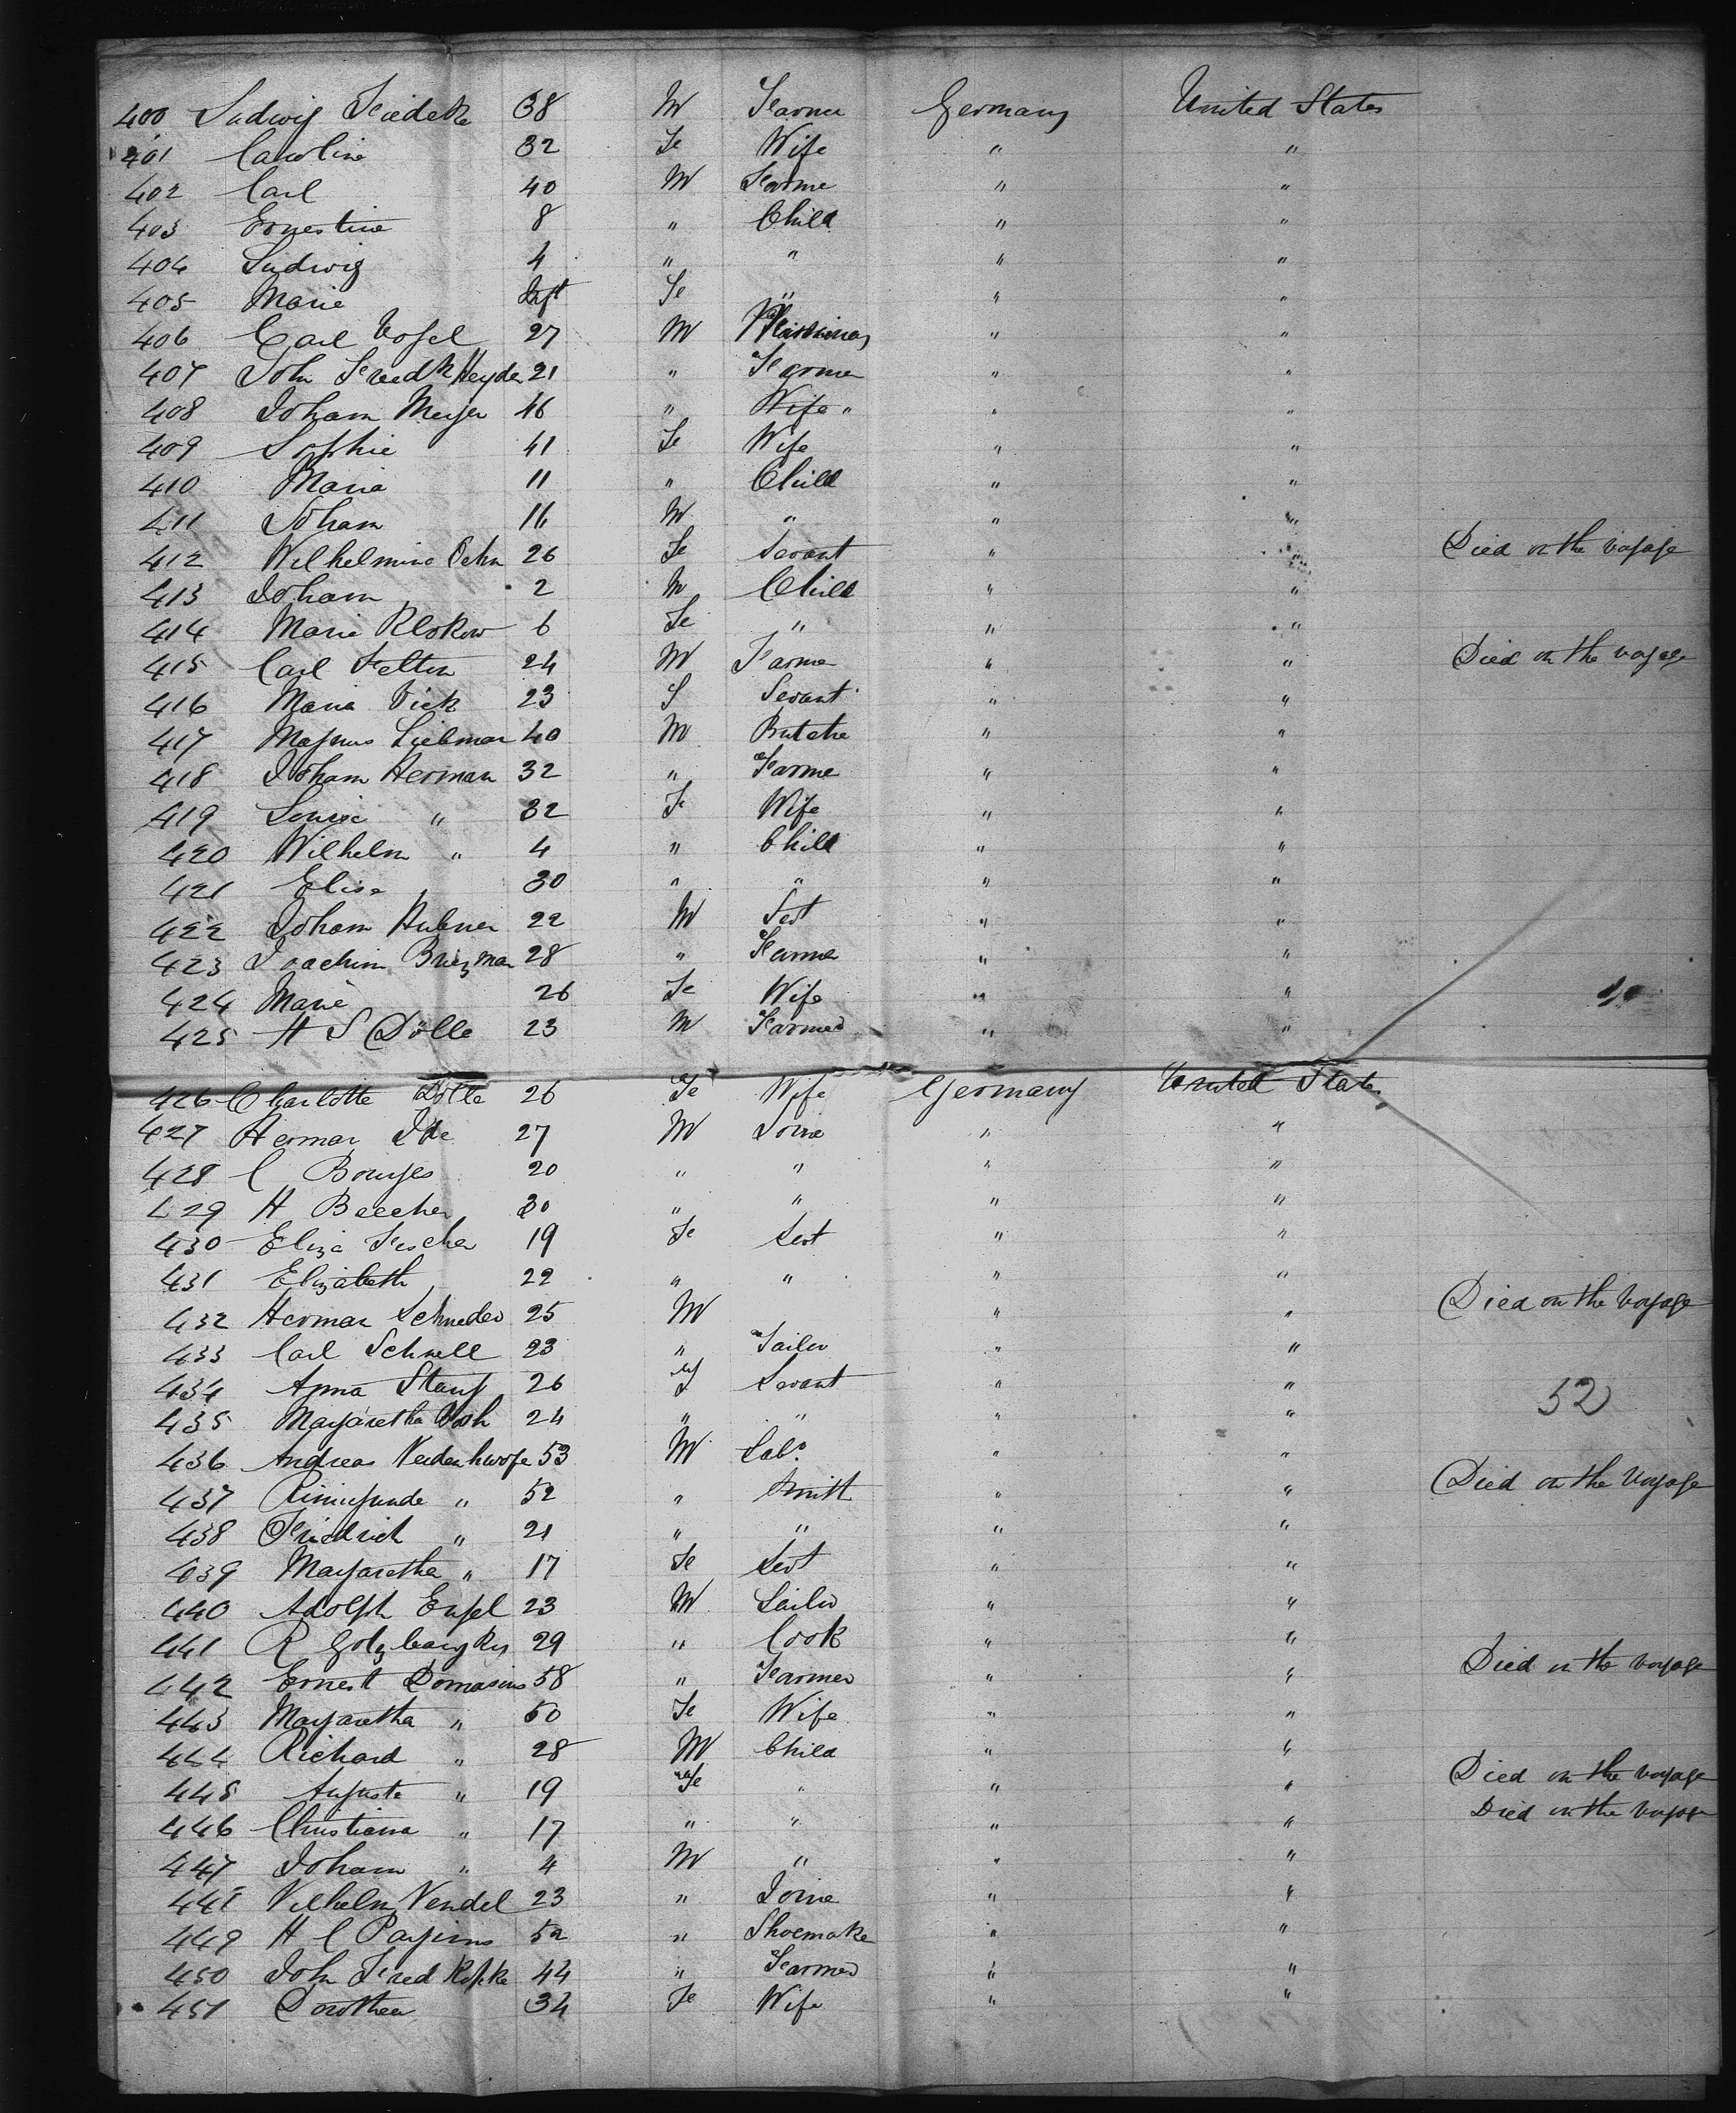 400 Ludwig Friedek 38 M Farmer Germany United States
401 Caroline 32 Fe Wife " "
402 Carl 40 M Farme " "
403 Ernestine 8 " Child " "
404 Ludwig 4 " " " "
405 Marie Inft Fe " " "
406 Carl Vogel 27 M " "
407 John Fredk Heyden 21 " Farmer " "
408 Joham Meyer 46 " Wife " " "
409 Sophie 41 Fe Wife " "
410 Maria 11 " Child " "
411 Joham 16 M " " "
412 Wilhelmine Oehn 26 Fe Servant " " Died on the voyage
413 Joham 2 M Child " "
414 Marie Klokow 6 Fe " " "
415 Carl Felten 24 M Farme " " Died on the voyage
416 Maria Vick 23 F Servant " "
417 Magnus Liebman 40 M Butche " "
418 Joham Herman 32 " Farme " "
419 Louise " 32 F Wife " "
420 Wilhelm " 4 " Child " "
421 Elise 30 " " " "
422 Joham Hubner 22 M Sert " "
423 Joachim Briezman 28 " Farme " "
424 Marie 26 Fe Wife " "
425 H S Dölle 23 M Farmer " "
426 Charlotte Dölle 26 Fe Wife Germany United States
427 Herman Ide 27 M Joine " "
428 C Bouges 20 " " " "
429 H Beecher 30 " " " "
430 Eliza Fischer 19 Fe Sert " "
431 Elizabeth 22 " " " "
432 Herman Schneder 25 M " " Died on the Voyage
433 Carl Schnell 23 " Tailor " "
434 Anna Stauf 26 F Servant " " 52
435 Margaretha 24 " " " "
436 Andreas 53 M Labr " "
437 " 52 " Smith " " Died on the Voyage
438 Friedrich " 21 " " " "
439 Margaretha " 17 Fe Sert " "
440 Adolph Engel 23 M Sailor " "
441 R 29 " Cook " "
442 Ernest Domasius 58 " Farmer " " Died on the voyage
443 Margaretha " 50 Fe Wife " "
444 Richard " 28 M Child " "
445 Auguste " 19 Fe " " " Died on the voyage
446 Christiana " 17 " " " " Died on the voyage
447 Joham " 4 M " " "
448 Vilhelm Vendel 23 " Joine " "
449 H C 52 " Shoemake " "
450 John Fred Kopke 44 " Farmer " "
451 Dorothea 34 Fe Wife " "